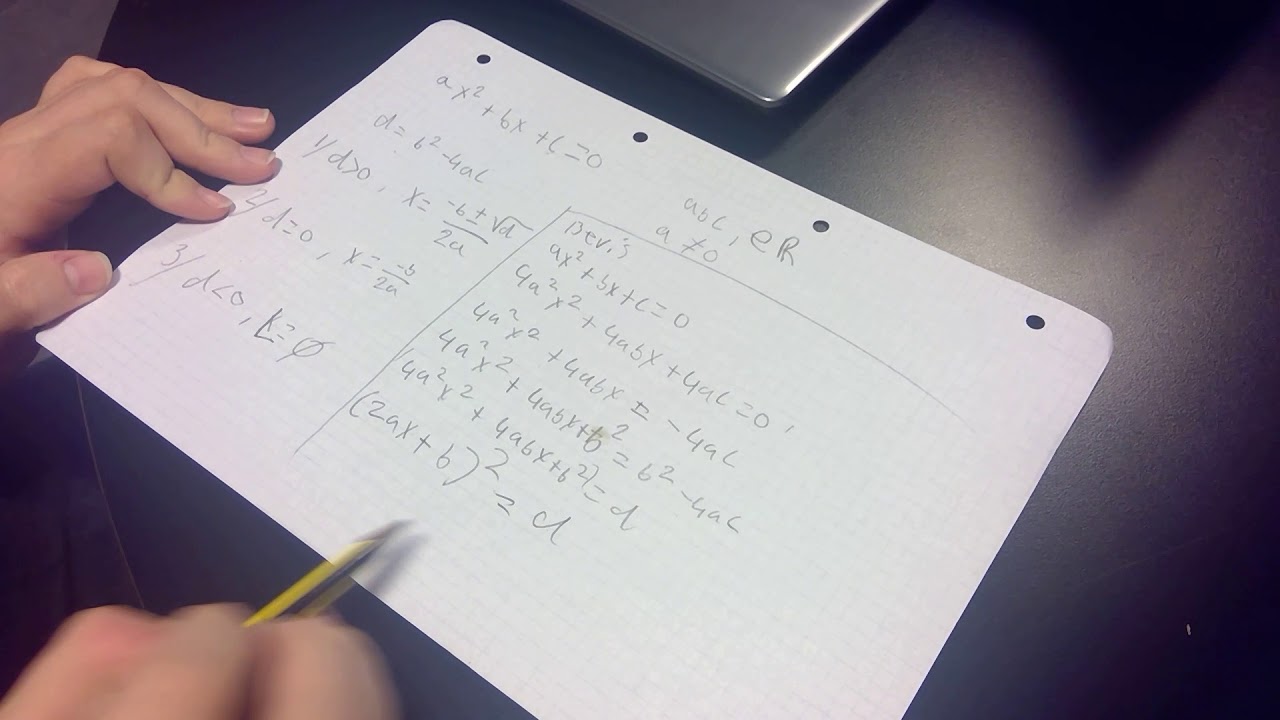 ax² + bx + c = 0
a b c, ∈ R
a ≠ 0
d = b² - 4ac
1/ d>0, x = \frac{-b ± √d}{2a}
2/ d=0, x = \frac{-b}{2a}
3/ d<0, L=∅
Bevis
ax² + bx + c = 0
4a²x² + 4abx + 4ac = 0,
4a²x² + 4abx = -4ac
4a²x² + 4abx + b² = b² - 4ac
4a²x² + 4abx + b²) = d
(2ax + b)² = d